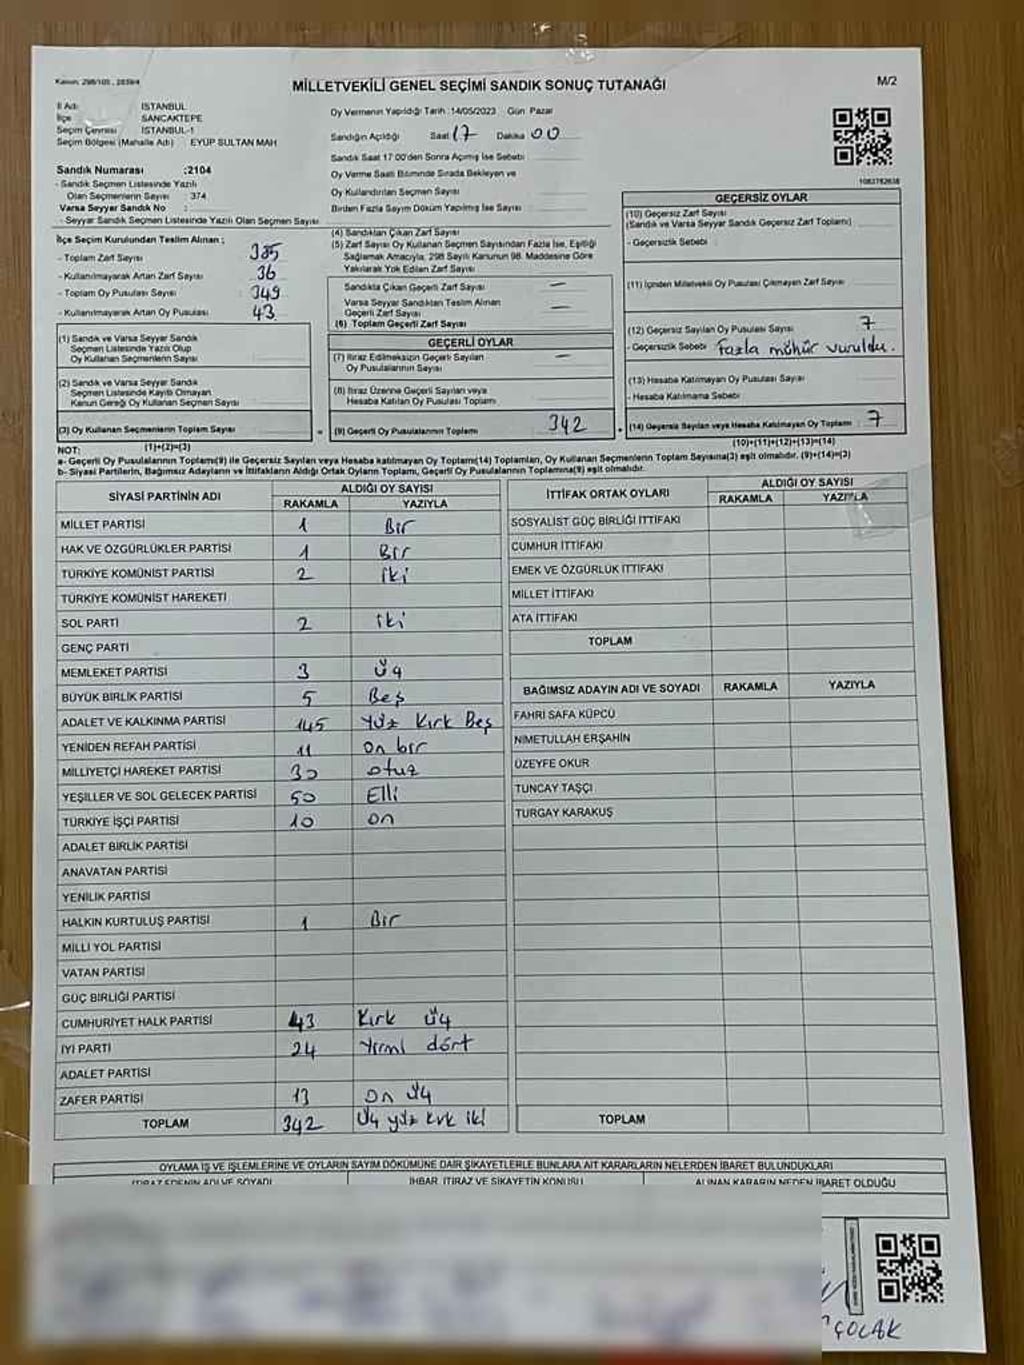 Kanun: 298/105, 2839/4
MİLLETVEKİLİ GENEL SEÇİMİ SANDIK SONUÇ TUTANAĞI
M/2
İl Adı : İSTANBUL
İlçe : SANCAKTEPE
Seçim Çevresi : İSTANBUL-1
Seçim Bölgesi (Mahalle Adı) : EYÜP SULTAN MAH
Sandık Numarası :2104
- Sandık Seçmen Listesinde Yazılı
Olan Seçmenlerin Sayısı : 374
Varsa Seyyar Sandık No :
- Seyyar Sandık Seçmen Listesinde Yazılı Olan Seçmen Sayısı
İlçe Seçim Kurulundan Teslim Alınan ;
- Toplam Zarf Sayısı : 385
- Kullanılmayarak Artan Zarf Sayısı : 36
- Toplam Oy Pusulası Sayısı : 349
- Kullanılmayarak Artan Oy Pusulası : 43
(1) Sandık ve Varsa Seyyar Sandık
Seçmen Listesinde Yazılı Olup
Oy Kullanan Seçmenlerin Sayısı
(2) Sandık ve Varsa Seyyar Sandık
Seçmen Listesinde Kayıtlı Olmayan
Kanun Gereği Oy Kullanan Seçmen Sayısı
(3) Oy Kullanan Seçmenlerin Toplam Sayısı
(1)+(2)=(3)
Oy Vermenin Yapıldığı Tarih :14/05/2023 Gün: Pazar
Sandığın Açıldığı Saat 17 Dakika 00
Sandık Saat 17:00'den Sonra Açılmış İse Sebebi
Oy Verme Saati Bitiminde Sırada Bekleyen ve
Oy Kullandırılan Seçmen Sayısı
Birden Fazla Sayım Döküm Yapılmış İse Sayısı
(4) Sandıktan Çıkan Zarf Sayısı
(5) Zarf Sayısı Oy Kullanan Seçmen Sayısından Fazla İse, Eşitliği
Sağlamak Amacıyla, 298 Sayılı Kanunun 98. Maddesine Göre
Yakılarak Yok Edilen Zarf Sayısı
Sandıkta Çıkan Geçerli Zarf Sayısı —
Varsa Seyyar Sandıktan Teslim Alınan
Geçerli Zarf Sayısı —
(6) Toplam Geçerli Zarf Sayısı
GEÇERLİ OYLAR
(7) İtiraz Edilmeksizin Geçerli Sayılan
Oy Pusulalarının Sayısı —
(8) İtiraz Üzerine Geçerli Sayılan veya
Hesaba Katılan Oy Pusulası Toplamı
(9) Geçerli Oy Pusulalarının Toplamı 342
1083782638
GEÇERSİZ OYLAR
(10) Geçersiz Zarf Sayısı
(Sandık ve Varsa Seyyar Sandık Geçersiz Zarf Toplamı)
- Geçersizlik Sebebi :
(11) İçinden Milletvekili Oy Pusulası Çıkmayan Zarf Sayısı
(12) Geçersiz Sayılan Oy Pusulası Sayısı 7
- Geçersizlik Sebebi Fazla mühür vuruldu.
(13) Hesaba Katılmayan Oy Pusulası Sayısı
- Hesaba Katılmama Sebebi
(14) Geçersiz Sayılan veya Hesaba Katılmayan Oy Toplamı : 7
(10)+(11)+(12)+(13)=(14)
NOT:
a- Geçerli Oy Pusulalarının Toplamı(9) ile Geçersiz Sayılan veya Hesaba katılmayan Oy Toplamı(14) Toplamları, Oy Kullanan Seçmenlerin Toplam Sayısına(3) eşit olmalıdır. (9)+(14)=(3)
b- Siyasi Partilerin, Bağımsız Adayların ve İttifakların Aldığı Ortak Oyların Toplamı, Geçerli Oy Pusulalarının Toplamına(9) eşit olmalıdır.
SİYASİ PARTİNİN ADI ALDIĞI OY SAYISI
RAKAMLA YAZIYLA
MİLLET PARTİSİ 1 Bir
HAK VE ÖZGÜRLÜKLER PARTİSİ 1 Bir
TÜRKİYE KOMÜNİST PARTİSİ 2 iki
TÜRKİYE KOMÜNİST HAREKETİ
SOL PARTİ 2 iki
GENÇ PARTİ
MEMLEKET PARTİSİ 3 Üç
BÜYÜK BİRLİK PARTİSİ 5 Beş
ADALET VE KALKINMA PARTİSİ 145 Yüz Kırk Beş
YENİDEN REFAH PARTİSİ 11 On bir
MİLLİYETÇİ HAREKET PARTİSİ 30 otuz
YEŞİLLER VE SOL GELECEK PARTİSİ 50 Elli
TÜRKİYE İŞÇİ PARTİSİ 10 On
ADALET BİRLİK PARTİSİ
ANAVATAN PARTİSİ
YENİLİK PARTİSİ
HALKIN KURTULUŞ PARTİSİ 1 Bir
MİLLİ YOL PARTİSİ
VATAN PARTİSİ
GÜÇ BİRLİĞİ PARTİSİ
CUMHURİYET HALK PARTİSİ 43 Kırk Üç
İYİ PARTİ 24 Yirmi dört
ADALET PARTİSİ
ZAFER PARTİSİ 13 On Üç
TOPLAM 342 Üç yüz kırk iki
İTTİFAK ORTAK OYLARI ALDIĞI OY SAYISI
RAKAMLA YAZIYLA
SOSYALİST GÜÇ BİRLİĞİ İTTİFAKI
CUMHUR İTTİFAKI
EMEK VE ÖZGÜRLÜK İTTİFAKI
MİLLET İTTİFAKI
ATA İTTİFAKI
TOPLAM
BAĞIMSIZ ADAYIN ADI VE SOYADI RAKAMLA YAZIYLA
FAHRİ SAFA KÜPCÜ
NİMETULLAH ERŞAHİN
ÜZEYFE OKUR
TUNCAY TAŞÇI
TURGAY KARAKUŞ
TOPLAM
OYLAMA İŞ VE İŞLEMLERİNE VE OYLARIN SAYIM DÖKÜMÜNE DAİR ŞİKAYETLERLE BUNLARA AİT KARARLARIN NELERDEN İBARET BULUNDUKLARI
İTİRAZ EDENİN ADI VE SOYADI İHBAR, İTİRAZ VE ŞİKAYETİN KONUSU ALINAN KARARIN NEDEN İBARET OLDUĞU
ÇOLAK